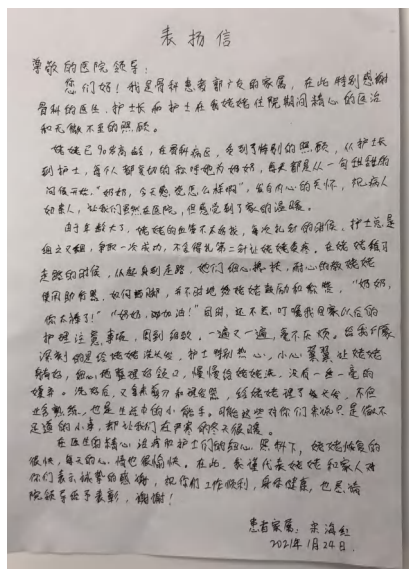 表扬信
尊敬的医院领导:
您们好!我是骨科患者郭广友的家属,在此特别感谢
骨科的医生、护士长和护士在我姥姥住院期间精心的医治
和无微不至的照顾。
姥姥已90岁高龄,在骨科病区,受到了特别的照顾,从护士长
到护士,每个人都亲切的称呼她为奶奶,每天都是从一句甜甜的
问候开始,“奶奶,今天感觉怎么样啊”,发自内心的关怀,视病人
如亲人,让我们虽然在医院,但感觉到了家的温暖。
由于年龄大了,姥姥的血管不太好找,每次扎针的时候,护士总是
细之又细,争取一次成功,不舍得扎第二针让姥姥受疼。在姥姥练习
走路的时候,从起身到走路,她们细心搀扶,耐心的教姥姥
使用助行器,如何踢脚,并不时地给姥姥鼓励和称赞,“奶奶,
你太棒了!”“奶奶,加油!”同时,还不忘,叮嘱我回家以后的
护理注意事项,周到细致,一遍又一遍,毫不厌烦。给我印象
深刻的是给姥姥洗头发,护士特别热心,小心翼翼让姥姥
躺好,细心地整理好领口,慢慢给姥姥洗,没有一丝一毫的
嫌弃。洗好后,又拿来剪刀和理发器,给姥姥理了头发,不但
业务熟练,也是生活中的小能手。可能这些对你们来说只是微不
足道的小事,却让我们在严寒的冬天很暖。
在医生的精心治疗和护士们的细心照料下,姥姥恢复的
很快,每天的心情也很愉快。在此,我谨代表姥姥和家人对
你们表示诚挚的感谢,祝你们工作顺利,身体健康,也恳请
院领导给予表彰,谢谢!
患者家属:宋海红
2021年1月24日.